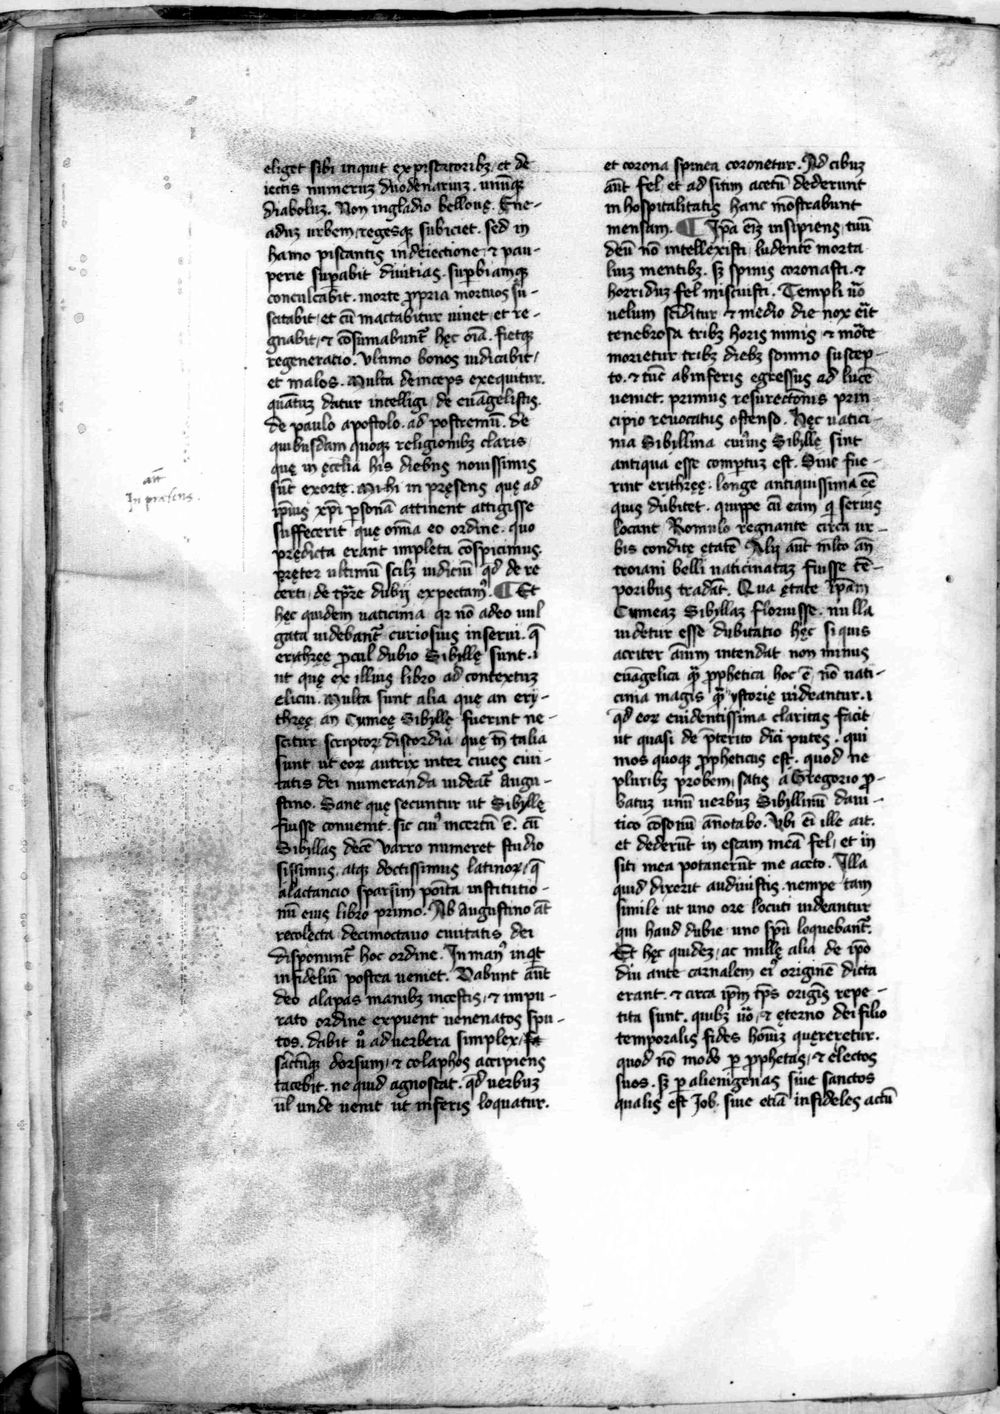 eliget sibi inquit ex piscatoribz, et de
iectis numeruz duodenariuz. unūqz
diaboluz. Non in gladio bellove. Ene-
aduz urbem, regesqz subiciet. sed in
hamo piscantis in deiectione, ⁊ pau-
perie supabit divitias. supbiamqz
conculcabit. morte ppria mortuos su-
scitabit, et cū mactabitur vivet, et re-
gnabit, ⁊ cōsumabunt᷑ hęc oīa. fietqz
regeneratio. Ultimo bonos iudicabit,
et malos. Multa deinceps exequitur.
quātuz datur intelligi, de euāgelistis.
de paulo apostolo. ad postremū. de
quibusdam quoqz religionibz claris
quę in ęcclīa his diebus novissimis
sūt exortę. Mihi in pręsens quę ad
ipīus xp̄i psonā attinent attigisse
suffecerit quę omīa eo ordine. quo
prędicta erant impleta cōspicimus.
pręter ultimū scilz iudiciū qd de re
certi, de tp̄re dubii expectam᷒. ¶ Et
hęc quidem vaticinia qr nō adeo vul
gata videbant᷑ curiosius inserui. q̄
erithręę procul dubio Sibillę sunt. i
ut quę ex illius libro ad contextuz
elicui. Multa sunt alia quę an ery-
thręę, an Cumeę Sibyllę fuerint ne-
scitur scriptoꝝ discordia, quę tn̄ talia
sunt ut eoꝝ autrix inter cives civi-
tatis dei numeranda videat᷑ Augu-
stino. Sane quę secuntur ut Sibyllę
fuisse convenit. sic cui᷒ incertū ē. cū
Sibyllas decē Varro numeret studio
sissimus. atqz doctissimus latinoꝝ, q̄
a lactancio sparsim posita institutio-
nū eius libro primo. Ab Augustino aūt
recolecta decimoctavo civitatis dei
disponunt᷑ hoc ordine. In man᷒ inqt
infideliū postea veniet. Dabunt aūt
deo alapas manibz incestis, ⁊ impu-
rato ordine expuent venenatos spu-
tos. dabit v̊ ad verbera simplex,
sāctūqz dorsum, ⁊ colaphos accipiens
tacebit. ne quid agnoscat. qd verbuz
vl unde venit ut inferis loquatur.
et corona spinea coronetur. Ad cibuz
aūt fel, et ad sitim acetū dederunt
in hospitalitatis hanc mōstrabunt
mensam. ¶ Ip̄a eīz insipiens, tuū
deū nō intellexisti, ludentē morta
liuz mentibz. sz spinis coronasti. ⁊
horriduz fel miscuisti. Templi v̄o
velum scīditur ⁊ medio die nox erit
tenebrosa tribz horis nimis, ⁊ mōte
morietur tribz diebz somno suscep-
to. ⁊ tūc ab inferis egressus ad lucē
veniet. primus resurectionis prin
cipio revocatus ostenso. Hęc vatici-
nia Sibillina cui᷒vis Sibyllę sint
antiqua esse comptuz est. Sive fue-
rint erithręę. longe antiquissima eē
quis dubitet. quippe cū eam q̄ serius
locant Romulo regnante circa ur-
bis conditę ętatē Alij aūt mlto añ
troiani belli vaticinataz fuisse tē-
poribus tradāt. Qua ętate ip̄am
Cumeaz Sibyllaz floruisse. nulla
videtur esse dubitatio hęc si quis
acriter aīum intendat non minus
euāgelica q̄ prophetica hoc ē, nō vati-
cinia magis q̄ ystorię videantur. i
qd eoꝝ evidentissima claritas facit
ut quasi de p̄terito dici putes. qui
mos quoqz propheticus est. quod ne
pluribz probem, satis a Gregorio p-
batuz unū verbuz Sibyllinū davi-
tico cōsonū ānotabo. Ubi ei ille ait.
et dederūt in escam meā fel, et in
siti mea potaverūt me aceto. Illa
quid dixerit audivistis. nempe tam
simile ut uno ore locuti videantur
qui haud dubie uno sp̄u loquebant᷑.
Et hęc quidez, ac mille alia de ip̄o
diu ante carnalem ei᷒ originē dicta
erant. ⁊ circa ip̄m tp̄s origis repe-
tita sunt. quibz v̄o, ⁊ ęterno dei filio
temporalis fides hoīuz quęreretur.
quod nō modo p prophetas, ⁊ electos
suos. sz p alienigenas sive sanctos
qualis est Job. sive etiā infideles actū
aīt
In presens.